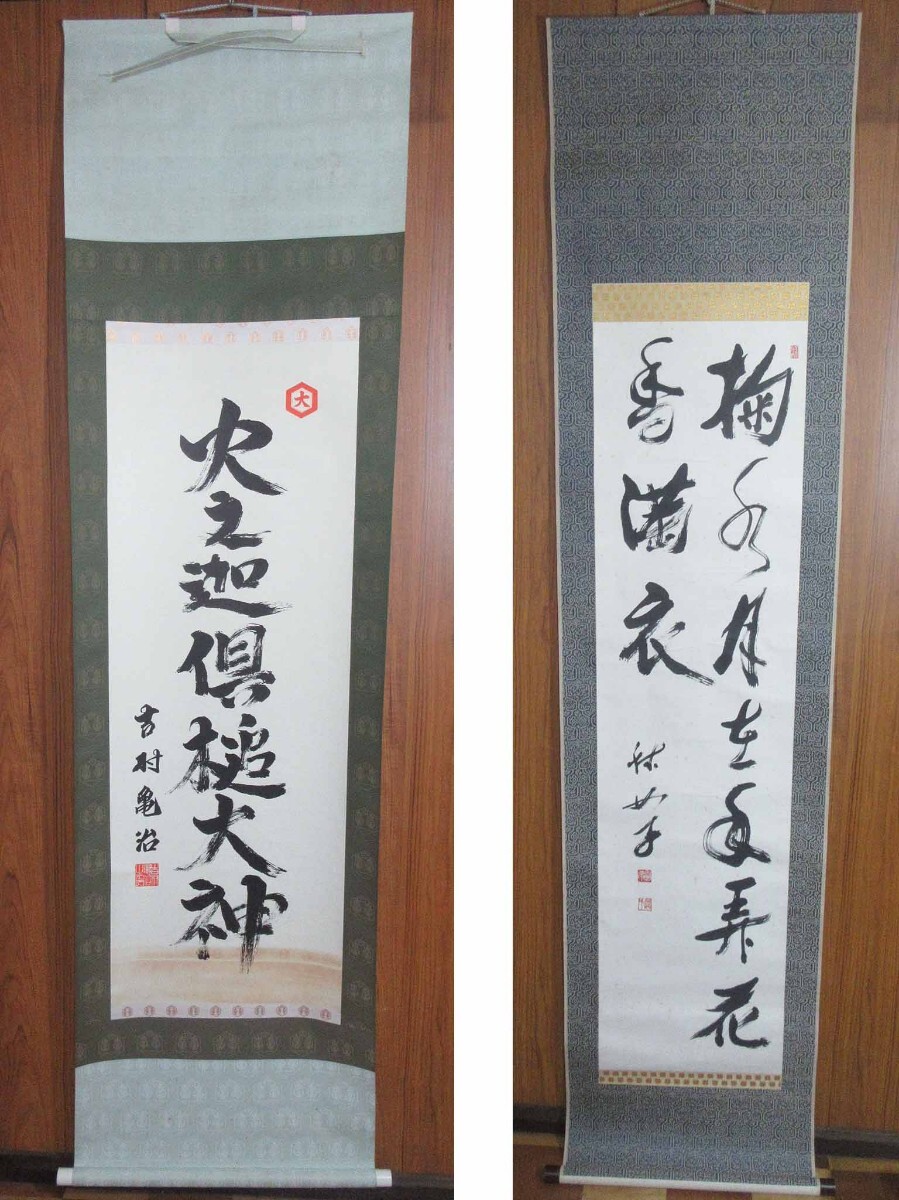 大
火之迦倶槌大神
吉村亀治
掬水月在手弄花
香満衣